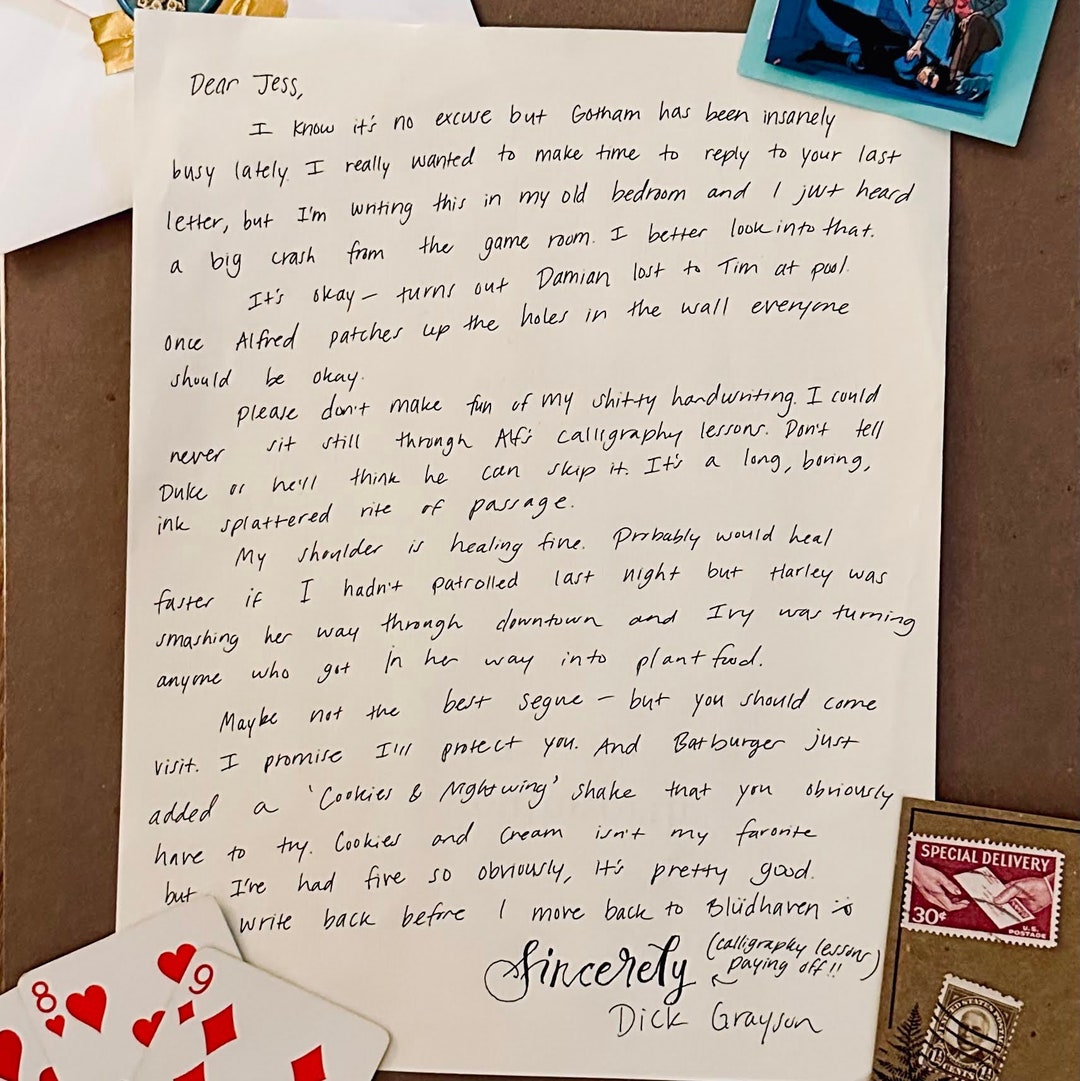 Dear Jess,
I know it's no excuse but Gotham has been insanely
busy lately. I really wanted to make time to reply to your last
letter, but I'm writing this in my old bedroom and I just heard
a big crash from the game room. I better look into that.
It's okay — turns out Damian lost to Tim at pool.
Once Alfred patches up the holes in the wall everyone
should be okay.
Please don't make fun of my shitty handwriting. I could
never sit still through Alf's calligraphy lessons. Don't tell
Duke or he'll think he can skip it. It's a long, boring,
ink splattered rite of passage.
My shoulder is healing fine. Probably would heal
faster if I hadn't patrolled last night but Harley was
smashing her way through downtown and Ivy was turning
anyone who got in her way into plant food.
Maybe not the best segue — but you should come
visit. I promise I'll protect you. And Batburger just
added a 'Cookies & Nightwing' shake that you obviously
have to try. Cookies and cream isn't my favorite
but I've had five so obviously, it's pretty good.
Write back before I move back to Blüdhaven
Sincerely (calligraphy lessons
paying off!!)
Dick Grayson
8
9
SPECIAL DELIVERY
30¢
U.S.
POSTAGE
UNITED STATES POSTAGE
1½ CENTS 1½